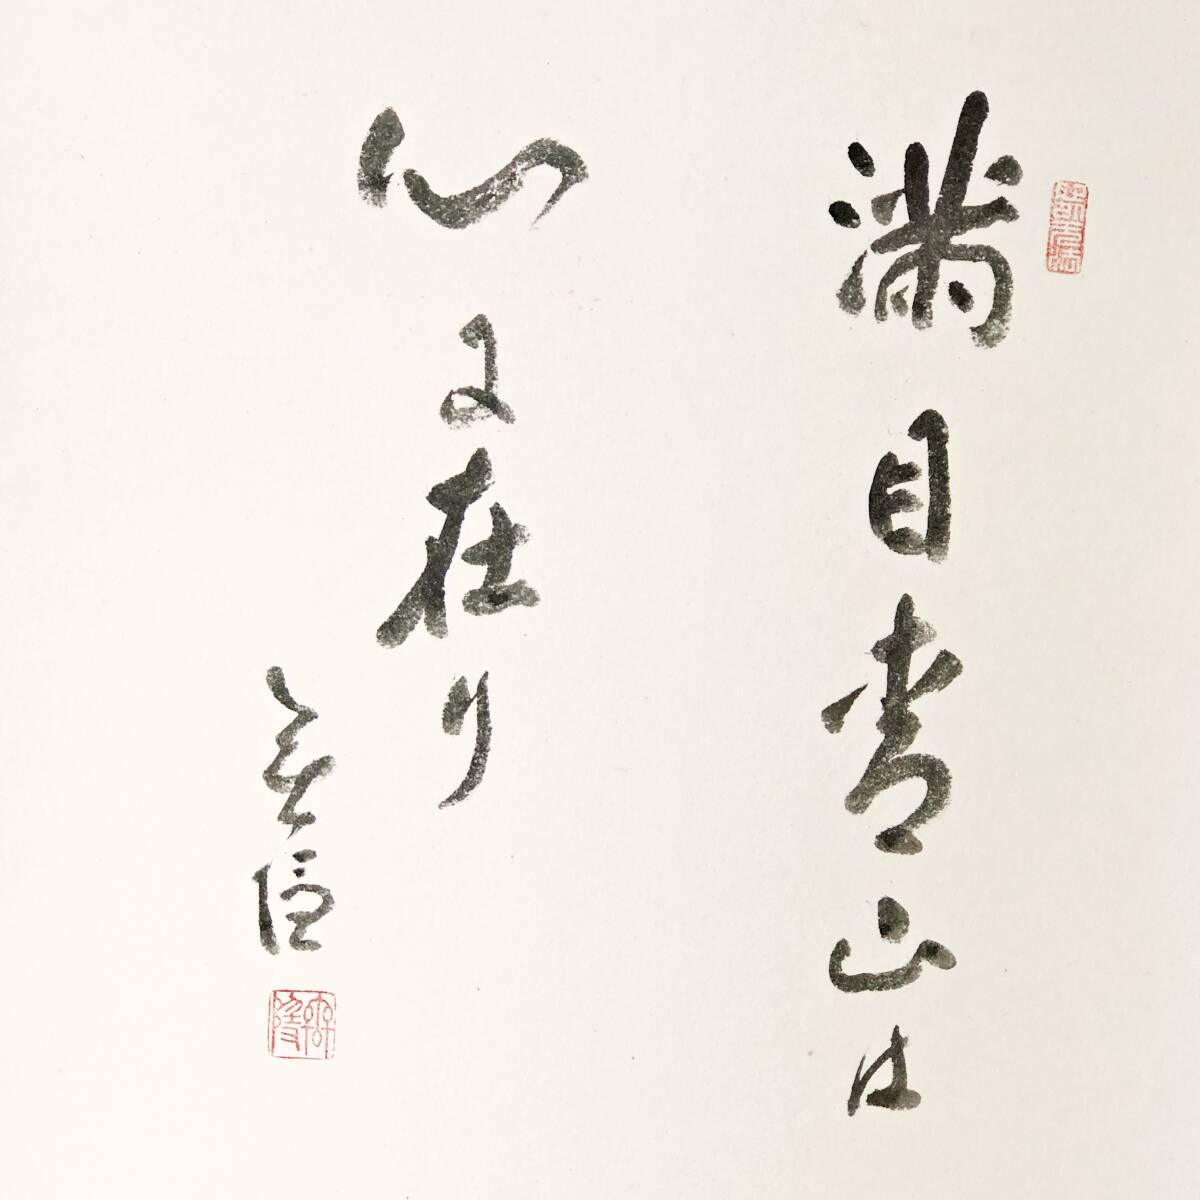 満目青山は
心に在り